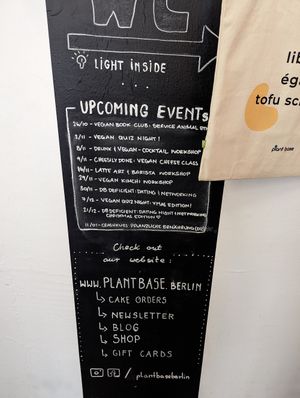 WC
LIGHT INSIDE
UPCOMING EVENTS
26/10 - VEGAN BOOK CLUB: SERVICE ANIMAL
3/11 - VEGAN QUIZ NIGHT!
8/11 - DRUNK & VEGAN - COCKTAIL WORKSHOP
9/11 - CHEESILY DONE: VEGAN CHEESE CLASS
LATTE ART & BARISTA WORKSHOP
VEGAN KIMCHI WORKSHOP
30/11 - DB DEFICIENT: DATING & NETWORKING
7/12 - VEGAN QUIZ NIGHT: XMAS EDITION!
21/12 - DB DEFICIENT: DATING NIGHT & NETWORKING
CHRISTMAS EDITION
11/01 - CRASHKURS: PFLANZLICHE ERNÄHRUNG
Check out
our website:
WWW.PLANTBASE.BERLIN
CAKE ORDERS
NEWSLETTER
BLOG
SHOP
GIFT CARDS
/plantbaseberlin
lib
éga
tofu sc
plant base